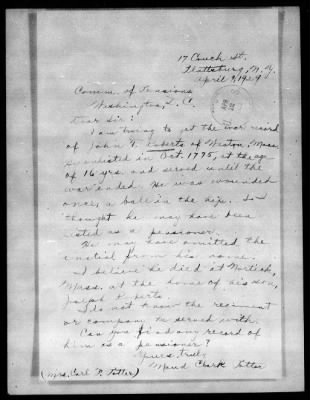 17 Couch St.
Plattsburg, N.Y.
April 9, 1929
Comm. of Pensions
Washington, D. C.
Dear Sir:
I am trying to get the war record
of John F. Roberts of Weston, Mass.
He enlisted in Oct. 1775, at the age
of 16 yrs. and served until the
war ended. He was wounded
once, a ball in the hip. So I
thought he may have been
listed as a pensioner.
He may have omitted the
initial from his name.
I believe he died at
Mass. at the home of his son,
Joseph Roberts.
I do not know the regiment
or company he served with.
Can you find any record of
him as a pensioner?
Yours truly
Maud Clark Potter
(Mrs. Carl F. Potter)